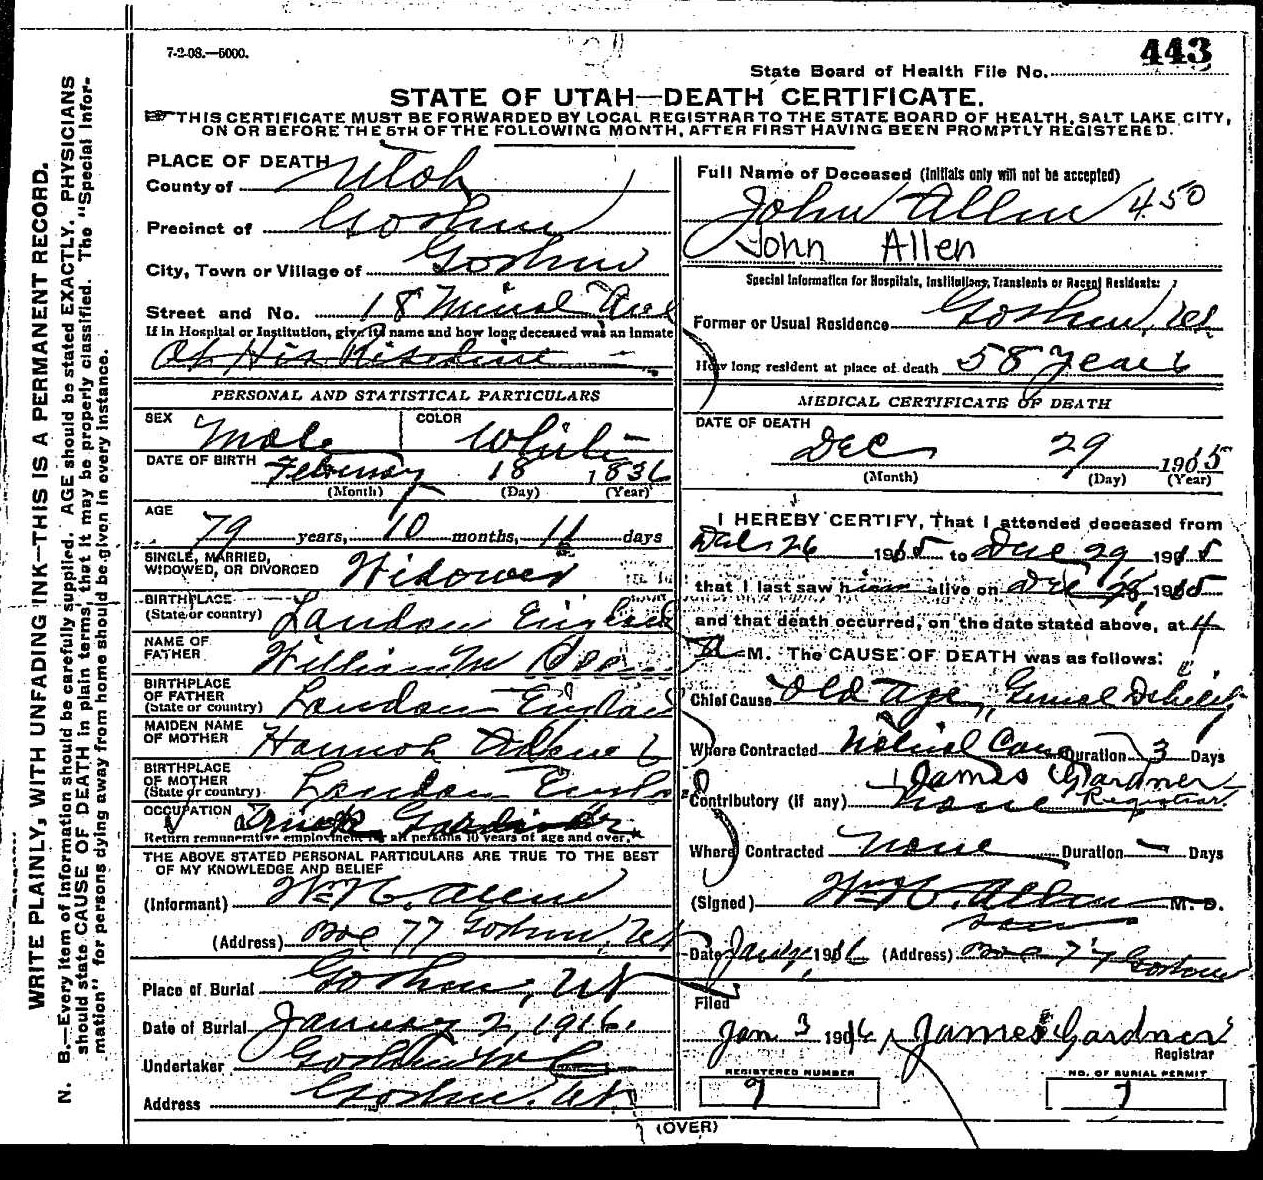 7-2-08.—5000.
443
State Board of Health File No.
STATE OF UTAH—DEATH CERTIFICATE.
THIS CERTIFICATE MUST BE FORWARDED BY LOCAL REGISTRAR TO THE STATE BOARD OF HEALTH, SALT LAKE CITY,
ON OR BEFORE THE 5TH OF THE FOLLOWING MONTH, AFTER FIRST HAVING BEEN PROMPTLY REGISTERED.
WRITE PLAINLY, WITH UNFADING INK—THIS IS A PERMANENT RECORD.
N. B.—Every item of information should be carefully supplied. AGE should be stated EXACTLY. PHYSICIANS
should state CAUSE OF DEATH in plain terms, that it may be properly classified. The "Special Infor-
mation" for persons dying away from home should be given in every instance.
PLACE OF DEATH
County of Utah
Precinct of Goshen
City, Town or Village of Goshen
Street and No. 18
If in Hospital or Institution, give its name and how long deceased was an inmate
At His Residence
PERSONAL AND STATISTICAL PARTICULARS
SEX Male COLOR White
DATE OF BIRTH February 18 1836
(Month) (Day) (Year)
AGE
79 years, 10 months, 11 days
SINGLE, MARRIED,
WIDOWED, OR DIVORCED Widower
BIRTHPLACE
(State or country) London England
NAME OF
FATHER William
BIRTHPLACE
OF FATHER
(State or country) London England
MAIDEN NAME
OF MOTHER Hannah
BIRTHPLACE
OF MOTHER
(State or country) London
OCCUPATION
Return remunerative employment for all persons 10 years of age and over.
THE ABOVE STATED PERSONAL PARTICULARS ARE TRUE TO THE BEST
OF MY KNOWLEDGE AND BELIEF
(Informant) Wm H. Allen
(Address) Box 77 Goshen, Ut
Place of Burial Goshen, Ut
Date of Burial January 2, 1916.
Undertaker Goshen
Address Goshen. Ut
Full Name of Deceased (Initials only will not be accepted)
John Allen 450
John Allen
Special Information for Hospitals, Institutions, Transients or Recent Residents:
Former or Usual Residence Goshen, Ut.
How long resident at place of death 58 Years
MEDICAL CERTIFICATE OF DEATH
DATE OF DEATH
Dec 29 1915
(Month) (Day) (Year)
I HEREBY CERTIFY, That I attended deceased from
Dec 26 1915 to Dec 29, 1915
that I last saw him alive on Dec 28, 1915
and that death occurred, on the date stated above, at 4
A M. The CAUSE OF DEATH was as follows:
Chief Cause Old Age, General Debility
Where Contracted Natural Cause Duration 3 Days
James Gardner
Registrar.
Contributory (if any) None
Where Contracted None Duration - Days
(Signed) Wm H. Allen M. D.
son
Date Jan 1916 (Address) Box 77 Goshen
Filed
Jan 3 1916 James Gardner
Registrar
REGISTERED NUMBER
NO. OF BURIAL PERMIT
(OVER)